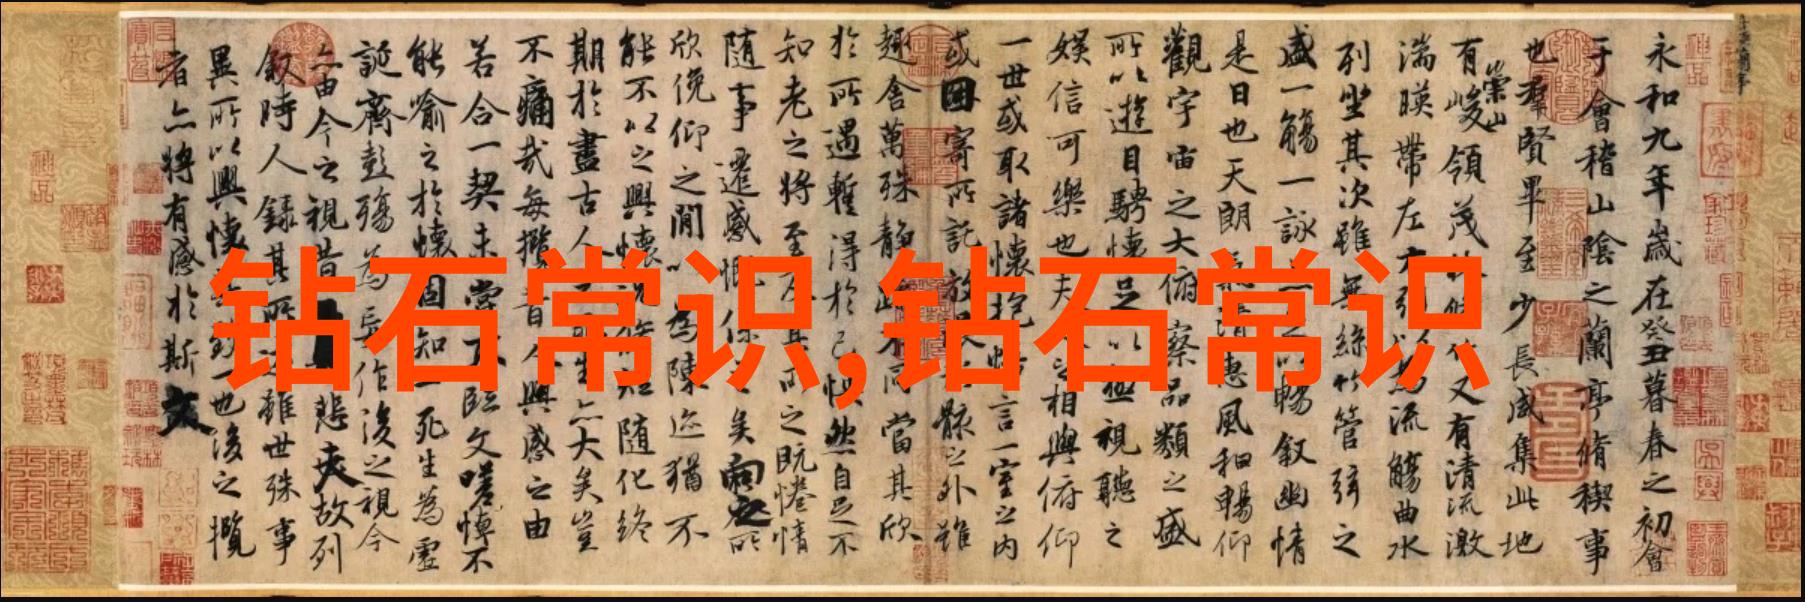 钻石常识,钻石常识
永和九年歲在癸丑暮春之初會
于會稽山陰之蘭亭脩稧事
也羣賢畢至少長咸集此地
有崇山峻領茂林脩竹又有清流激
湍暎帶左右引以為流觴曲水
列坐其次雖無絲竹管弦之
盛一觴一詠亦足以暢叙幽情
是日也天朗氣清惠風和暢仰
觀宇宙之大俯察品類之盛
所以遊目騁懷足以極視聽之
娛信可樂也夫人之相與俯仰
一世或取諸懷抱悟言一室之內
或因寄所託放浪形骸之外雖
趣舍萬殊靜躁不同當其欣
於所遇蹔得於己怏然自足不
知老之將至及其所之既惓情
隨事遷感慨係之矣向之所
欣俛仰之閒以為陳迹猶不
能不以之興懷況脩短隨化終
期於盡古人云死生亦大矣豈
不痛哉每攬昔人興感之由
若合一契未嘗不臨文嗟悼不
能喻之於懷固知一死生為虛
誕齊彭殤為妄作後之視今
亦由今之視昔悲夫故列
叙時人錄其所述雖世殊事
異所以興懷其致一也後之攬
者亦將有感於斯文